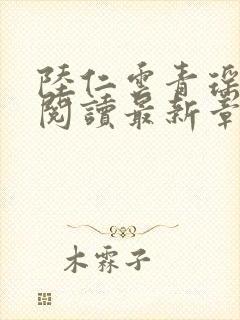 陸仁雲青瑤
閱讀最新章
木霖子